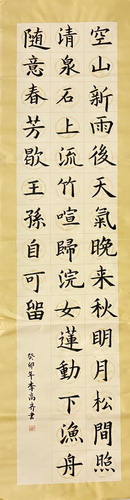 空山新雨後天氣晚来秋明月松間照
清泉石上流竹喧歸浣女蓮動下漁舟
随意春芳歇王孫自可留
癸卯年李高齐書